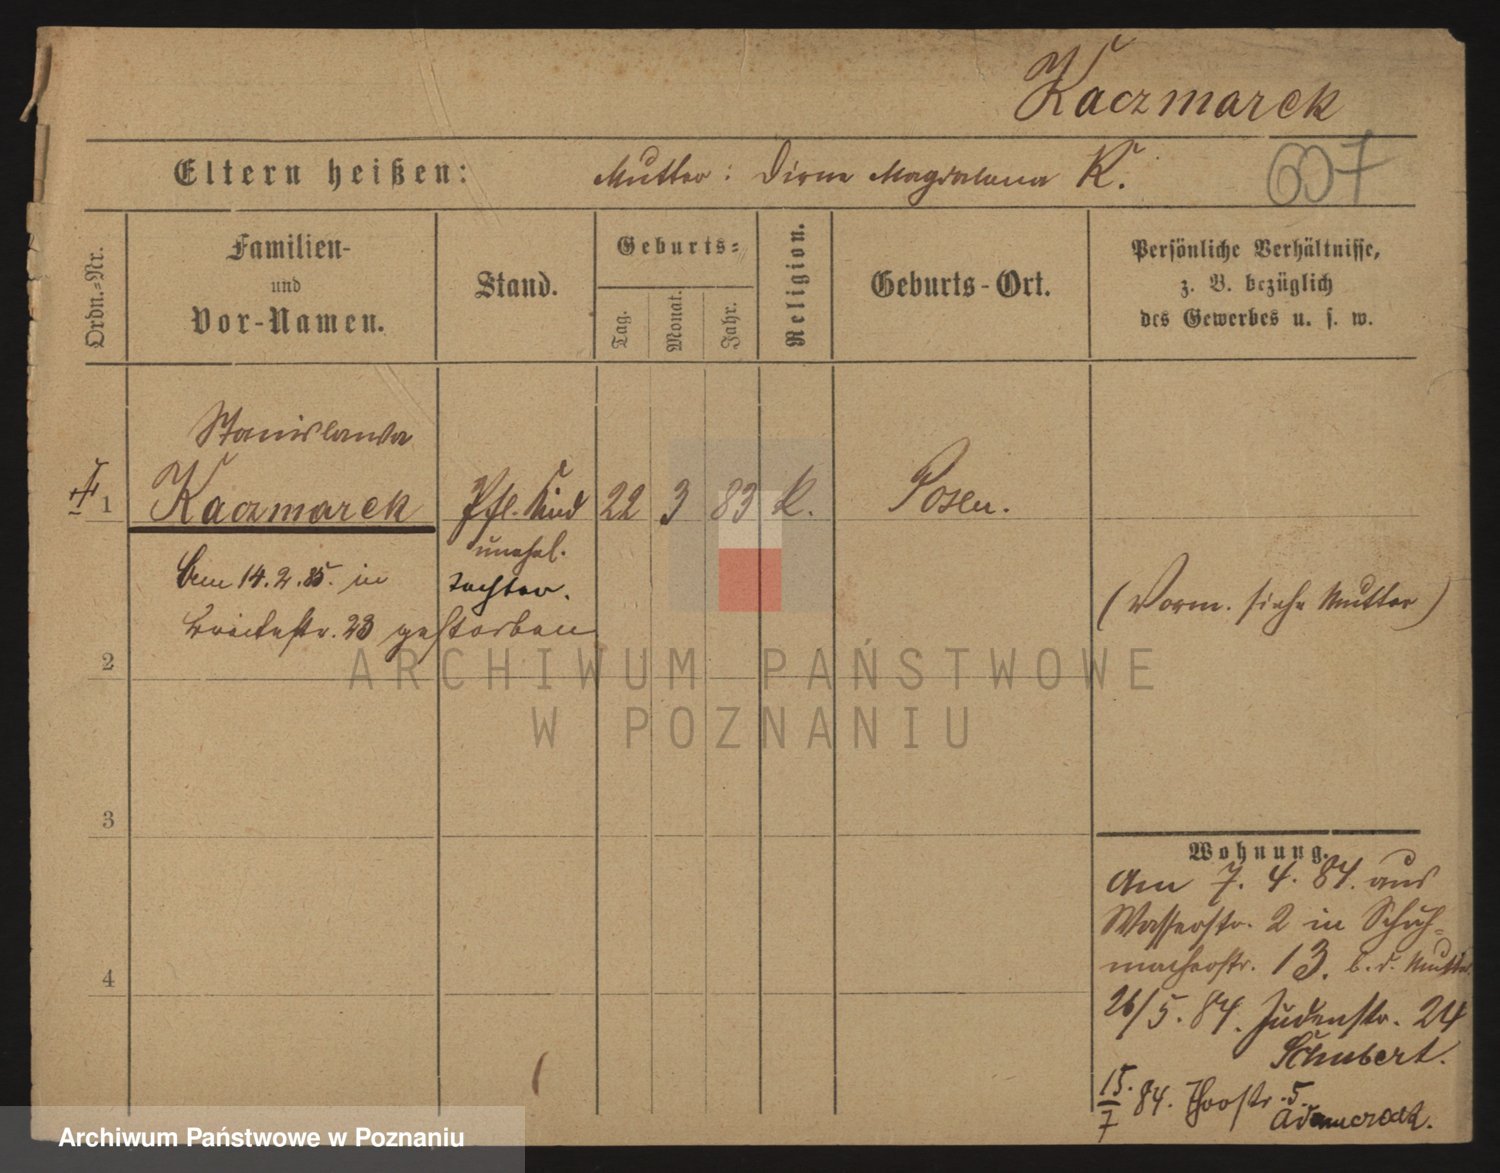 Kaczmarek
Eltern heißen: Mutter: Dirne Magdalena K. 607
Ordn.-Nr.
Familien-
und
Vor-Namen.
Stand.
Geburts-
Tag.
Monat.
Jahr.
Religion.
Geburts-Ort.
Persönliche Verhältnisse,
z. B. bezüglich
des Gewerbes u. s. w.
Stanislawa
1 Kaczmarek Pfl. Kind 22 3 83 K. Posen.
unehel.
Tochter.
Am 14.2.85. in
Breitestr. 23 gestorben
(Vorm. siehe Mutter)
2
ARCHIWUM PAŃSTWOWE
W POZNANIU
3
Wohnung.
Am 7. 4. 84. aus
Wasserstr. 2 in Schuh-
macherstr. 13. b. d. Mutter
4
26/5. 84. Judenstr. 24
Schubert.
15./7 84. Thorstr. 5.
Adamczak.
Archiwum Państwowe w Poznaniu